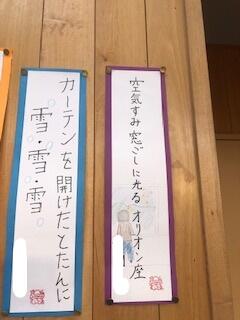 空気すみ窓ごしに光るオリオン座
カーテンを開けたとたんに
雪・雪・雪